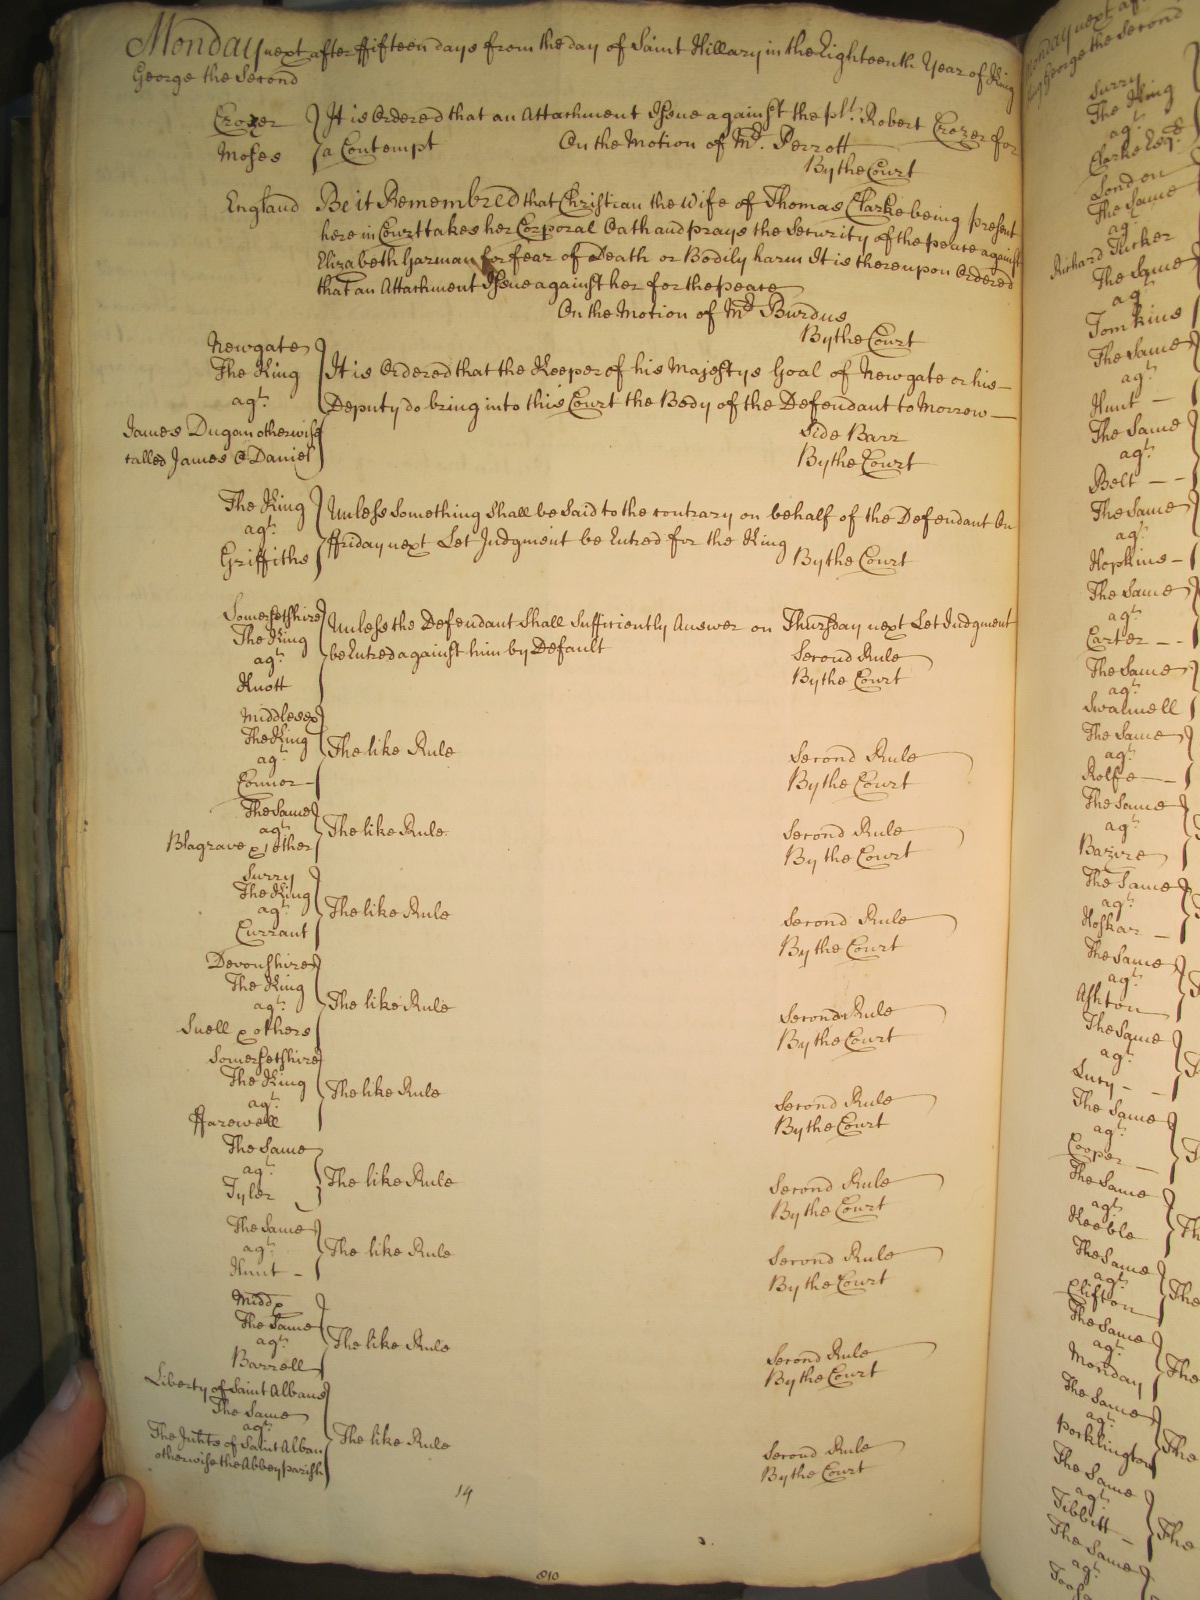 Monday next after ffifteen days from the day of Saint Hillary in the Eighteenth Year of King
George the Second
Crozer
Moses
It is Ordered that an Attachment Issue against the plt. Robert Crozer for
a Contempt On the Motion of Mr. Perrott
By the Court
England
Be it Remembred that Christian the Wife of Thomas Clarke being present
here in Court takes her Corporal Oath and prays the Security of the peace against
Elizabeth Harman for fear of Death or Bodily harm It is thereupon Ordered
that an Attachment Issue against her for the peace
On the Motion of Mr. Burdus
By the Court
Newgate
The King
agt.
James Dugan otherwise
called James O Daniel
It is Ordered that the Keeper of his Majestys Goal of Newgate or his
Deputy do bring into this Court the Body of the Defendant to Morrow
Side Barr
By the Court
The King
agt.
Griffiths
Unless something shall be said to the contrary on behalf of the Defendant On
ffriday next Let Judgment be Entred for the King
By the Court
Somersetshire
The King
agt.
Knott
Unless the Defendant shall sufficiently Answer on Thursday next Let Judgment
be Entred against him by Default
Second Rule
By the Court
Middlesex
The King
agt.
Connor
The like Rule
Second Rule
By the Court
The Same
agt.
Blagrave & other
The like Rule
Second Rule
By the Court
Surry
The King
agt.
Currant
The like Rule
Second Rule
By the Court
Devonshire
The King
agt.
Snell & others
The like Rule
Second Rule
By the Court
Somersetshire
The King
agt.
ffarewell
The like Rule
Second Rule
By the Court
The Same
agt.
Tyler
The like Rule
Second Rule
By the Court
The Same
agt.
Hunt
The like Rule
Second Rule
By the Court
Middx
The Same
agt.
Barrell
The like Rule
Second Rule
By the Court
Liberty of Saint Albans
The Same
agt.
The Inhits of Saint Alban
otherwise the Abby parish
The like Rule
Second Rule
By the Court
14
Monday next
King George the Second
Surry
The King
agt.
Clarke Esqr.
London
The Same
agt.
Richard Tucker
The Same
agt.
Tomkins
The Same
agt.
Hunt
The Same
agt.
Belt
The Same
agt.
Hopkins
The Same
agt.
Carter
The Same
agt.
Swannell
The Same
agt.
Rolfe
The Same
agt.
Bazire
The Same
agt.
Hoskar
The Same
agt.
Ashton
The Same
agt.
Lucy
The Same
agt.
Cooper
The Same
agt.
Keeble
The Same
agt.
Clifton
The
The Same
agt.
Monday
The
The Same
agt.
Pocklington
The
The Same
agt.
Tibbitt
The
The Same
agt.